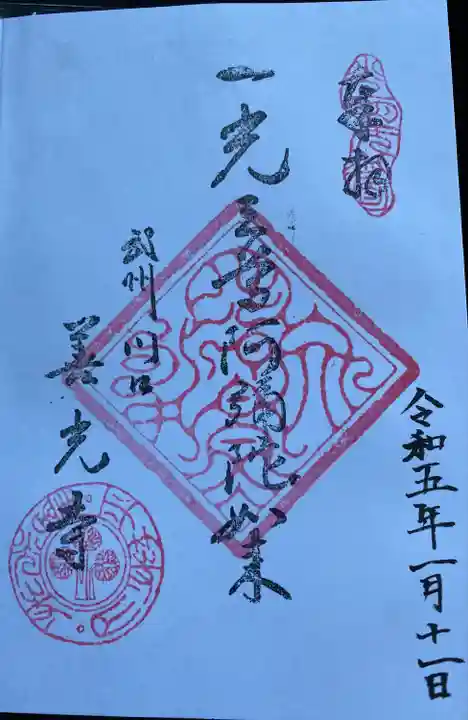 奉拝
令和五年一月十一日
一光三尊阿弥陀如来
武州川口
善光寺